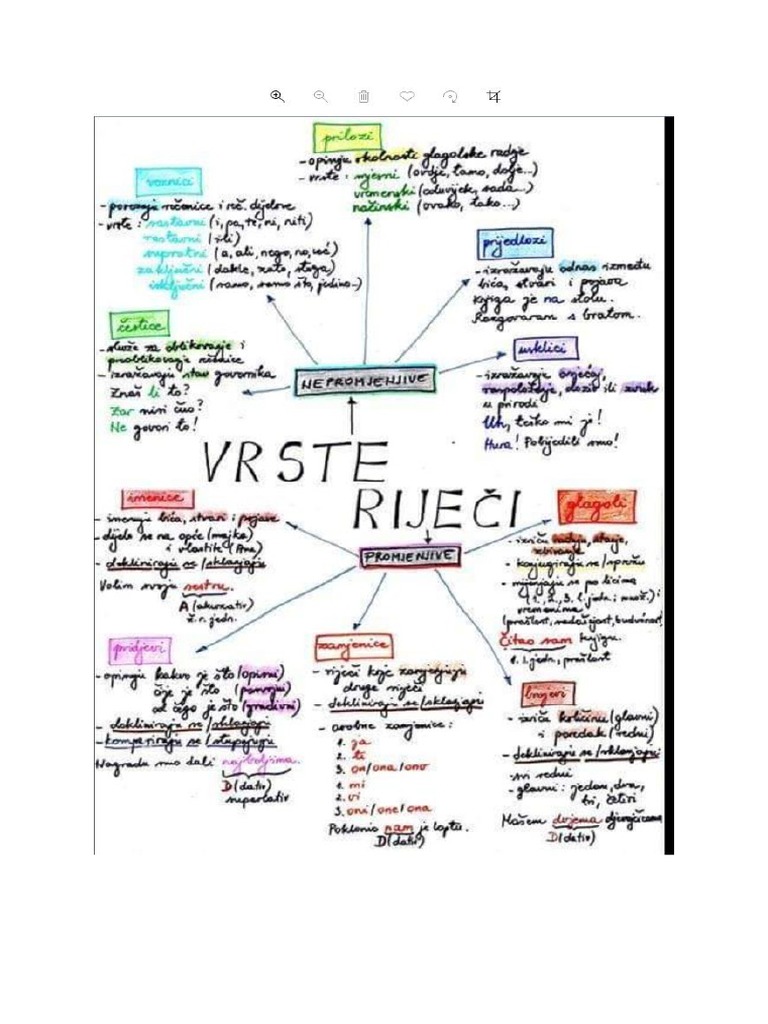 prilozi
- opisuju okolnosti glagolske radnje
- vrste : mjesni (ovdje, tamo, dolje...)
vremenski (oduvijek, sada...)
načinski (ovako, tako...)
veznici
- povezuju rečenice i reč. dijelove
- vrste : sastavni (i, pa, te, ni, niti)
rastavni (ili)
suprotni (a, ali, nego, no, već)
zaključni (dakle, zato, stoga)
isključni (samo, samo što, jedino...)
prijedlozi
- izražavaju odnos između
bića, stvari i pojava
Knjiga je na stolu.
Razgovaram s bratom.
čestice
- služe za oblikovanje i
preoblikovanje rečenice
- izražavaju stav govornika
Znaš li to?
Zar nisi čuo?
Ne govori to!
usklici
- izražavaju osjećaj,
raspoloženje, poziv ili zvuk
u prirodi
Uh, teško mi je!
Hura! Pobijedili smo!
NEPROMJENJIVE
VRSTE
RIJEČI
PROMJENJIVE
imenice
- imenuju bića, stvari i pojave
- dijele se na opće (majka)
i vlastite (Ana)
- dekliniraju se / sklanjaju
Volim svoju sestru.
A (akuzativ)
ž. r. jedn.
glagoli
- izriču radnju, stanje,
zbivanje
- konjugiraju se / sprežu
- mijenjaju se po licima
(1., 2., 3. l. jedn. i množ.) i
vremenima
(prošlost, sadašnjost, budućnost)
Čitao sam knjigu.
1. l. jedn., prošlost
pridjevi
- opisuju kakvo je što (opisni)
čije je što (posvojni)
od čega je što (gradivni)
- dekliniraju se / sklanjaju
- kompariraju se / stupnjuju
Nagradu smo dali najboljima.
D (dativ)
superlativ
zamjenice
- riječi koje zamjenjuju
druge riječi
- dekliniraju se / sklanjaju
- osobne zamjenice :
1. ja
2. ti
3. on / ona / ono
1. mi
2. vi
3. oni / one / ona
Poklonio nam je loptu.
D (dativ)
brojevi
- izriču količinu (glavni)
i poredak (redni)
- dekliniraju se / sklanjaju
svi redni
- glavni : jedan, dva,
tri, četiri
Mašem dvjema djevojčicama
D (dativ)